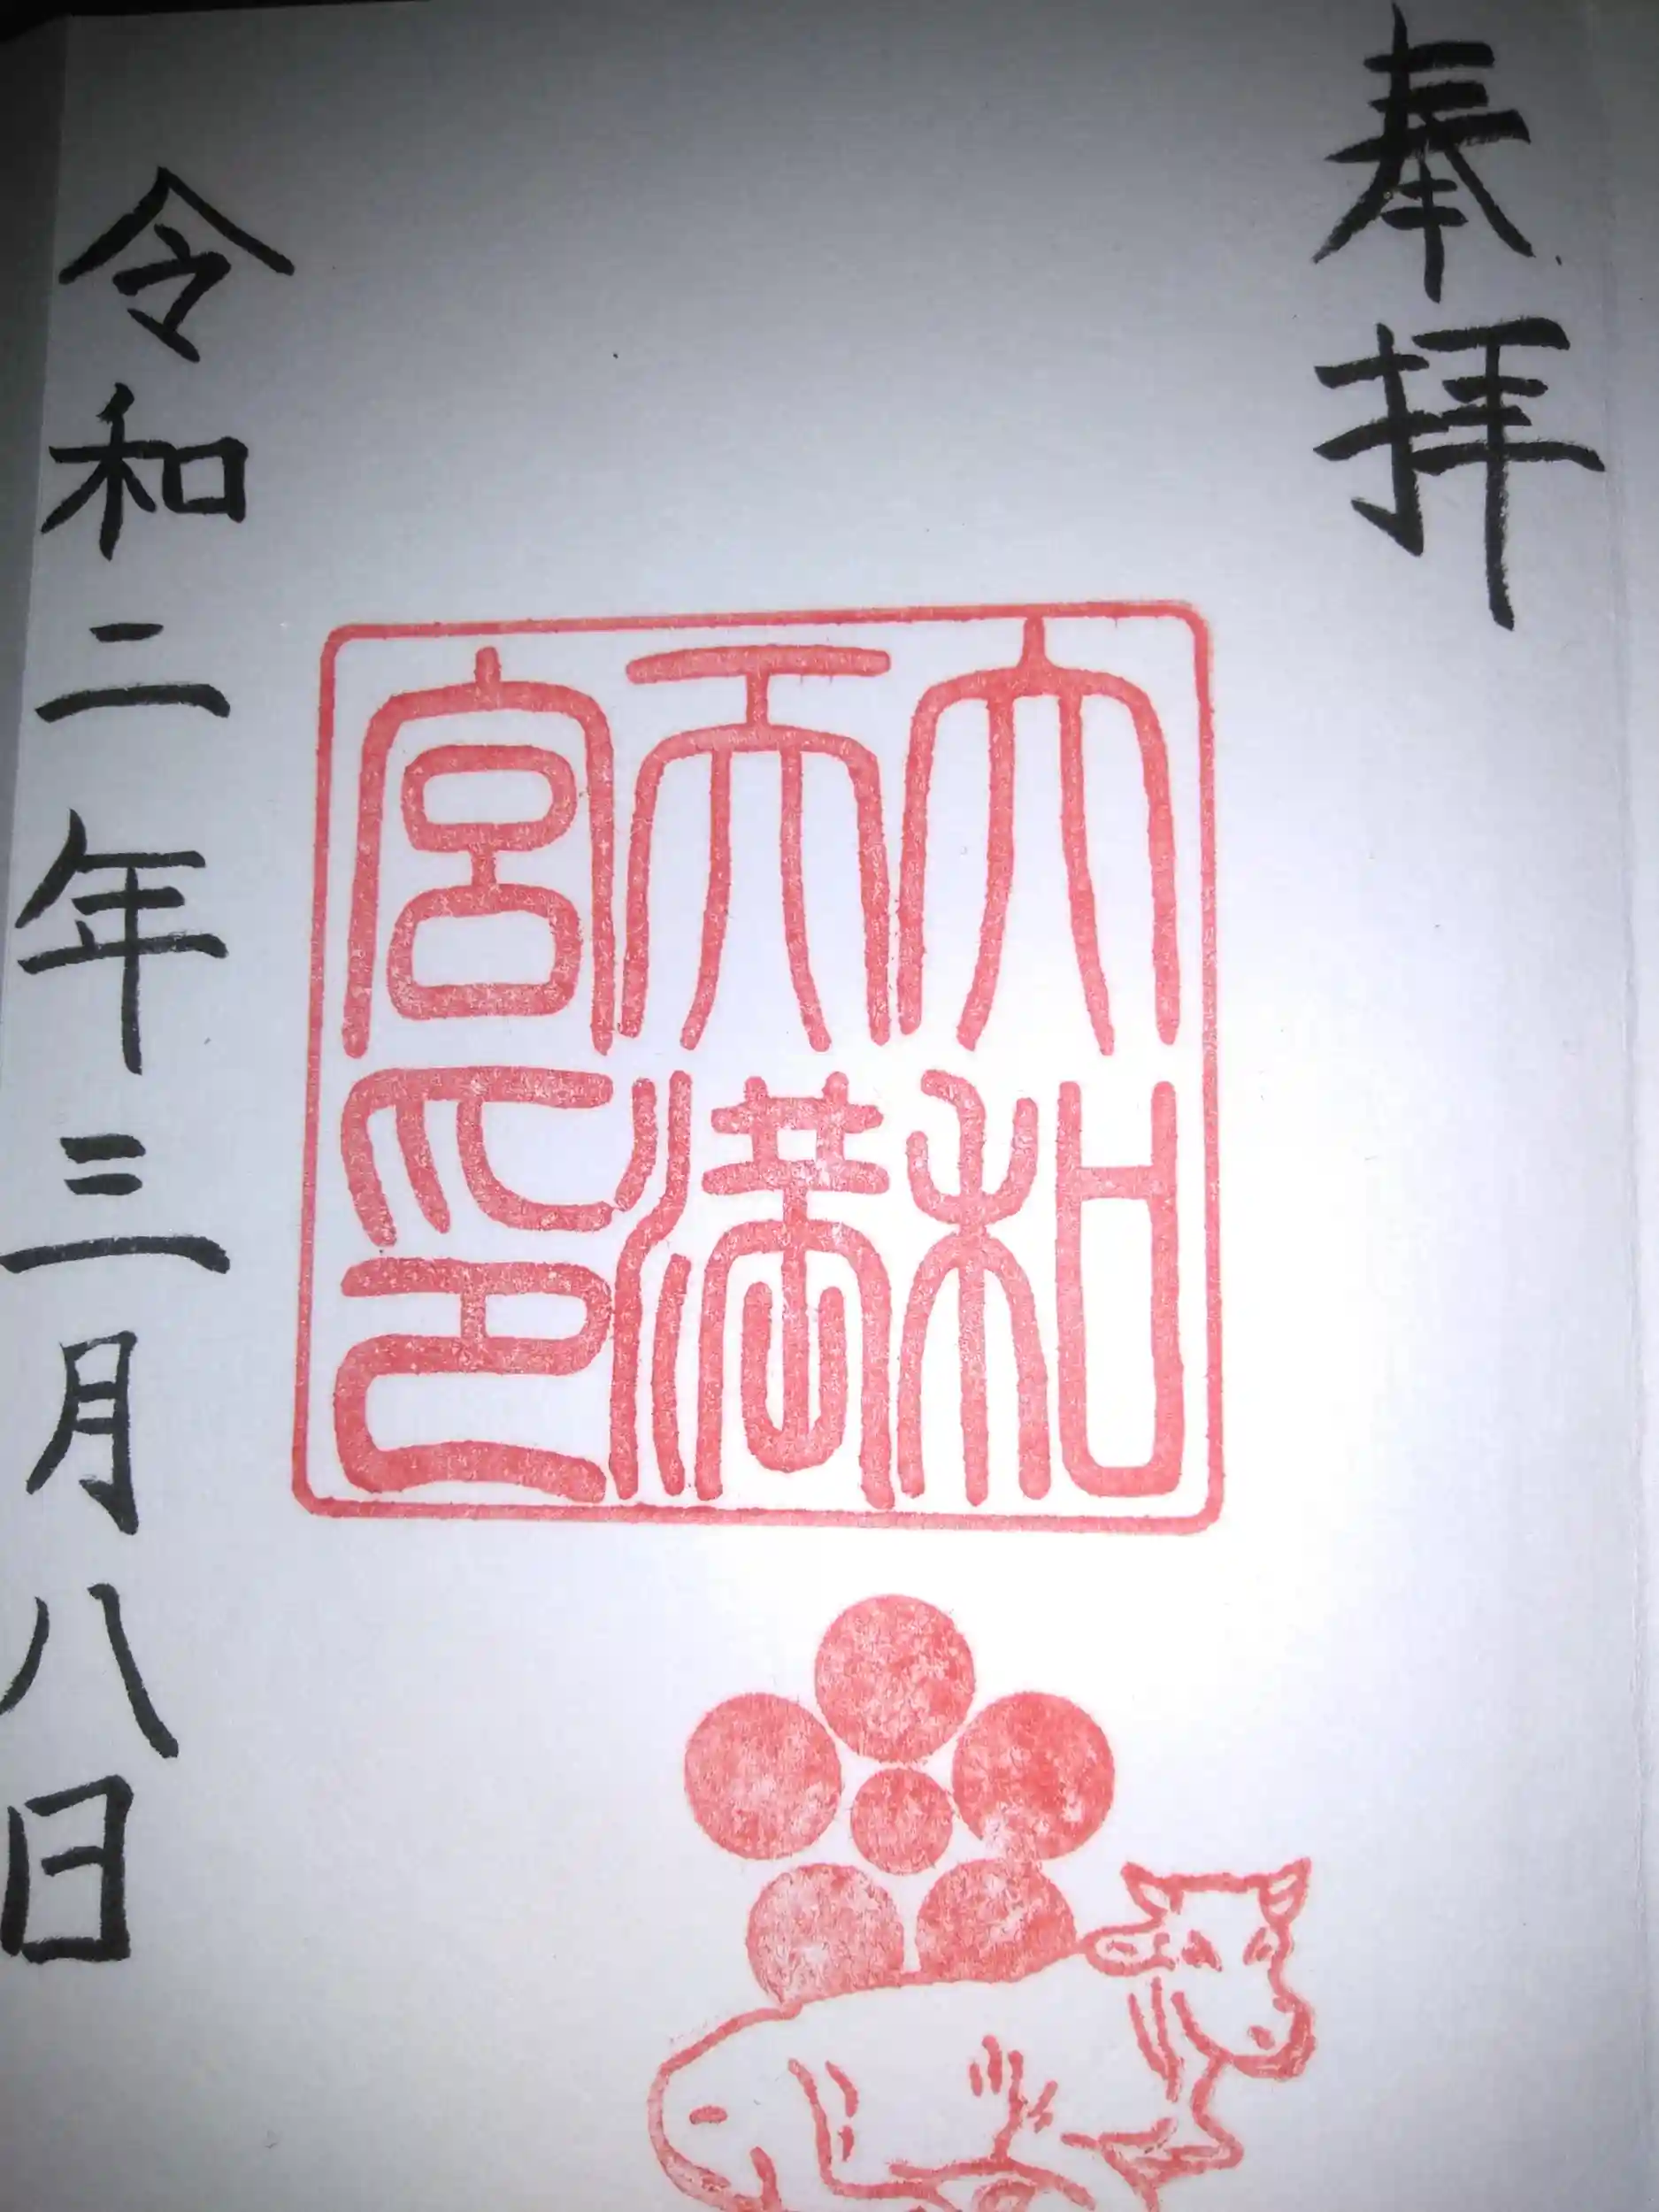 奉拝
大和
天満
宮印
令和二年三月八日